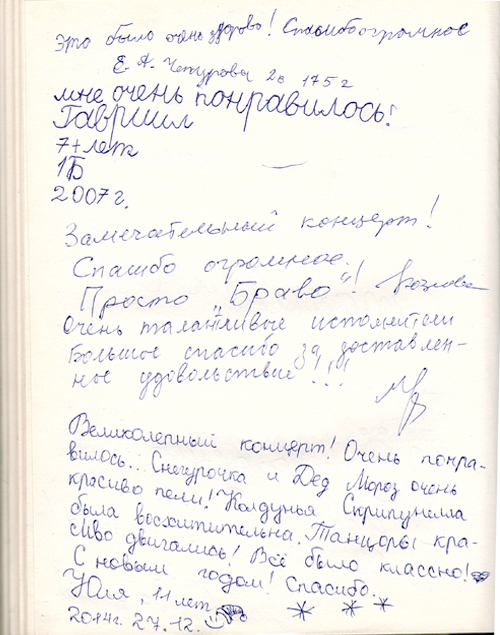 Это было очень здорово! Спасибо огромное
Е. А.
мне очень понравилось!
Гавриил
7+лет
1Б
2007 г.
Замечательный концерт!
Спасибо огромное.
Просто „Браво"!
Очень талантливые исполнители
Большое спасибо за доставлен-
ное удовольствие!!!
Великолепный концерт! Очень понра-
вилось... Снегурочка и Дед Мороз очень
красиво пели! Колдунья Скрипунелла
была восхитительна. Танцоры кра-
сиво двигались! Всё было классно!
С новым годом! Спасибо.
Юлия, 11 лет
2014г. 27.12.